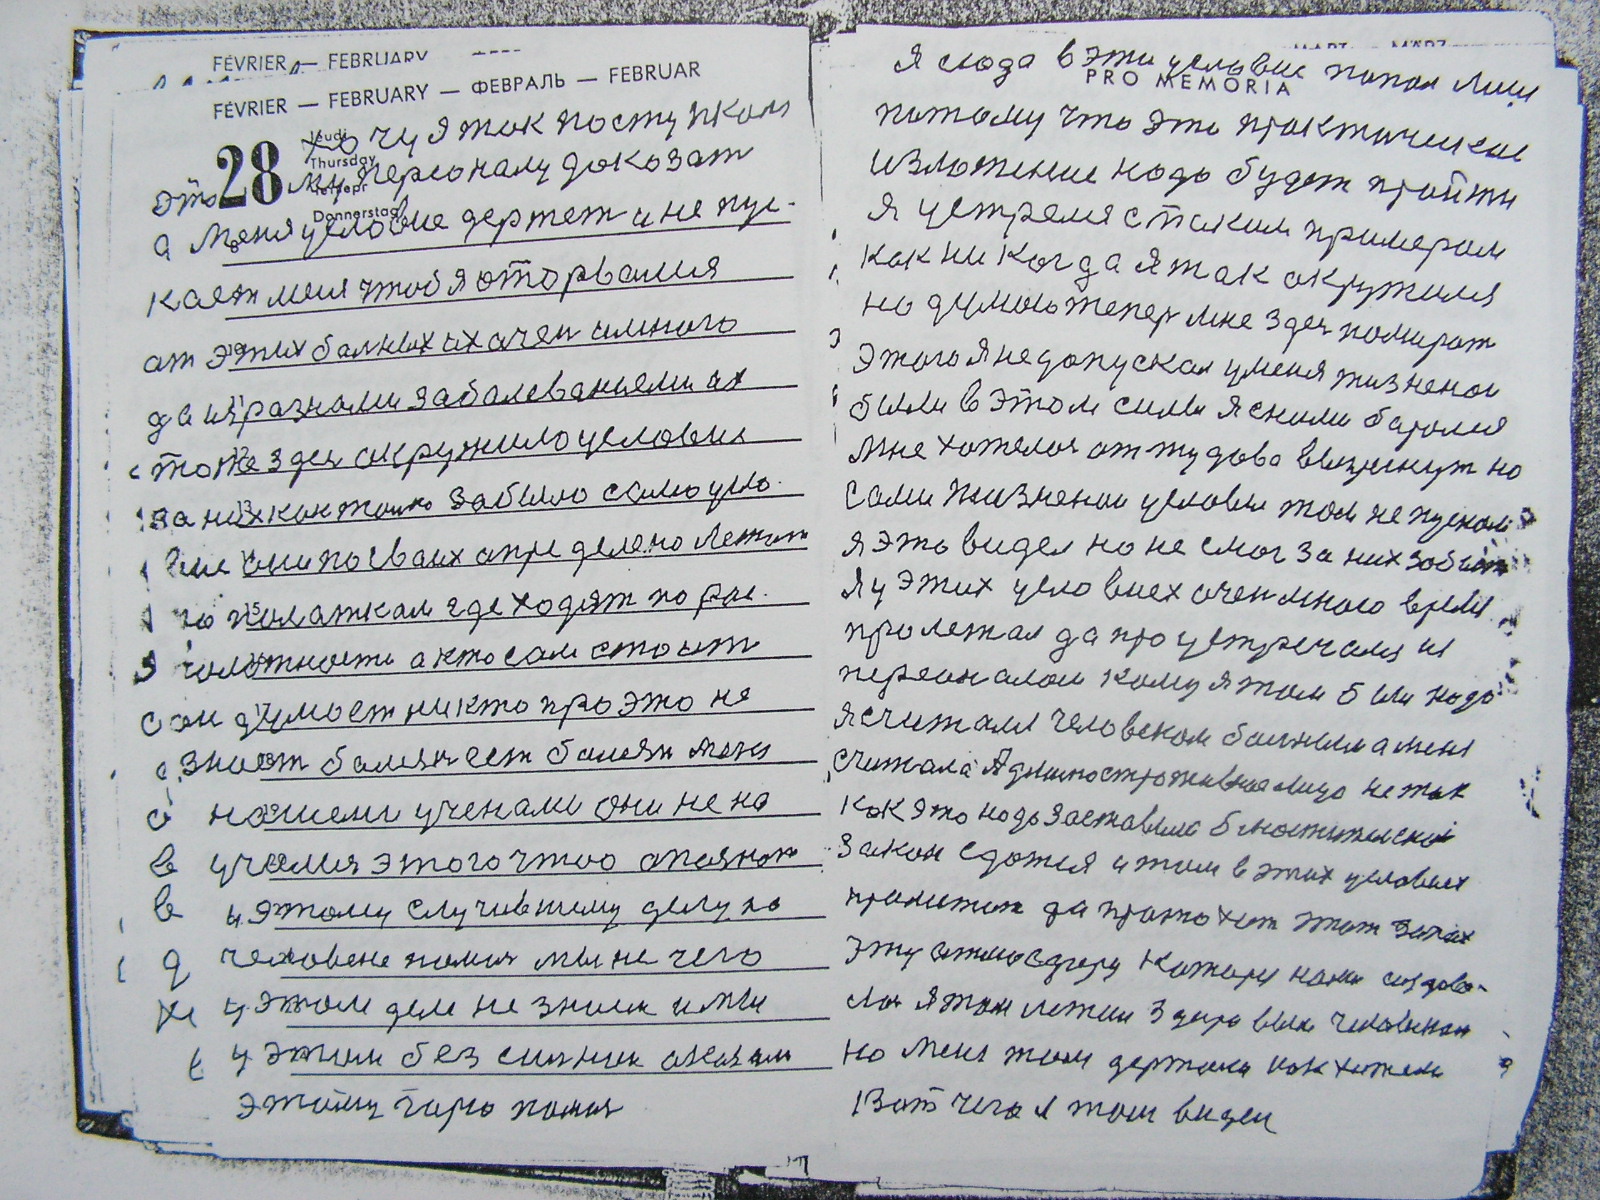 FÉVRIER — FEBRUARY
FÉVRIER — FEBRUARY — ФЕВРАЛЬ — FEBRUAR
28
Jeudi
Thursday
Четверг
Donnerstag
хочу я так поступком
это му персоналу доказат
а меня условие держет и не пус-
кает меня чтоб я оторвался
от этих балных их очен много
да из разнами заболеванием их
тоже здес окружило условие
за них как толко забыло само усло-
вие они по сваих определено лежат
по палаткам где ходят по рас-
чам а кто сам стоит
сам думает никто про это не
знает балян ест балян меня
нашеми учеными они не на
учился этого чтоо опазнат
у этому случившему делу по
человене помоч мы не чего
у этом деле не знаем и мы
у этим без силним оказали
этому горю помоч
PRO MEMORIA
Я сюда в эти условие попал лиш
потому что это практическое
изложение надо будет пройти
я устремя с таким примером
как ни когда я так окружился
но думаю тепер мне здес помират
этого я не допускал у меня жизненои
были в этом силы я сними боролся
мне хотелося оттудова выпрыгнут но
сами жизненои условия там не пускали
я это видел но не смог за них забыт
я у этих условиех очен много время
пролежал да про устречался и
персоналом кому я там был надо
я считали человеком болным а меня
считала Администротивное лицо не так
как это надо заставляло блюстителской
закон сдатся и там в этих условиех
да этот запах
эту атмосферу которую нам создова-
ли я там лежал здоровым человеком
но меня там держали как хотели
Вот чего я там видел